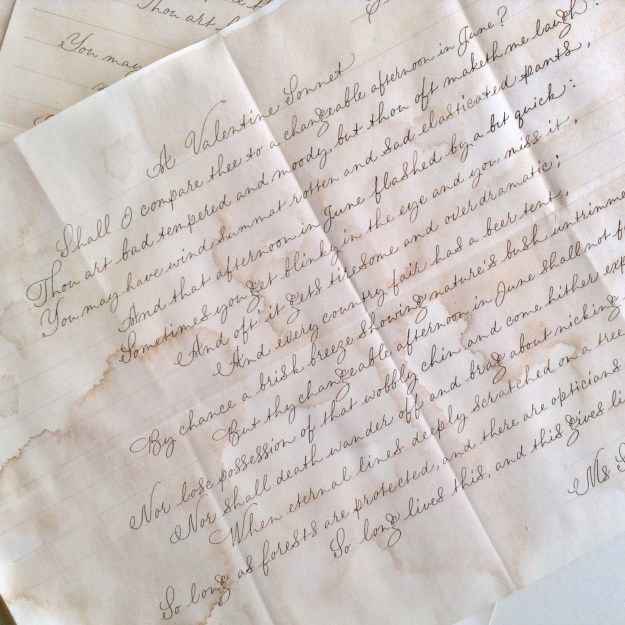 Thou art
You may
A Valentine Sonnet
Shall I compare thee to a changeable afternoon in June?
Thou art bad tempered and moody, but thou oft maketh me laugh:
You may have wind summat rotten and sad elasticated pants,
And that afternoon in June flashed by a bit quick:
Sometimes you get blinky in the eye and you miss it,
And oft it gets tiresome and over dramatic;
And every country fair has a beer tent,
By chance a brisk breeze showing nature's bush untrimme
But thy changeable afternoon in June shall not f
Nor lose possession of that wobbly chin (and come hithere exp
Nor shall death wander off and brag about nicking
When eternal lines deeply scratched on a tree
So long as forests are protected, and there are opticians
So long lives this, and this gives li
Ms S